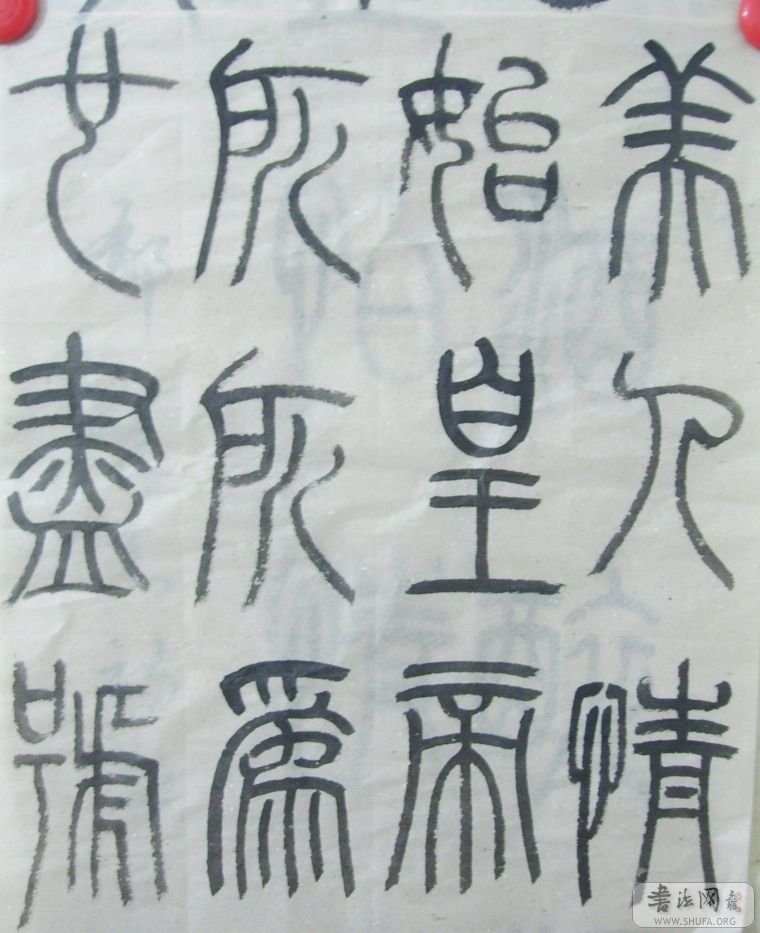 美人情
始皇帝
所所為
也盡號
書法网
WWW.SHUFA.ORG